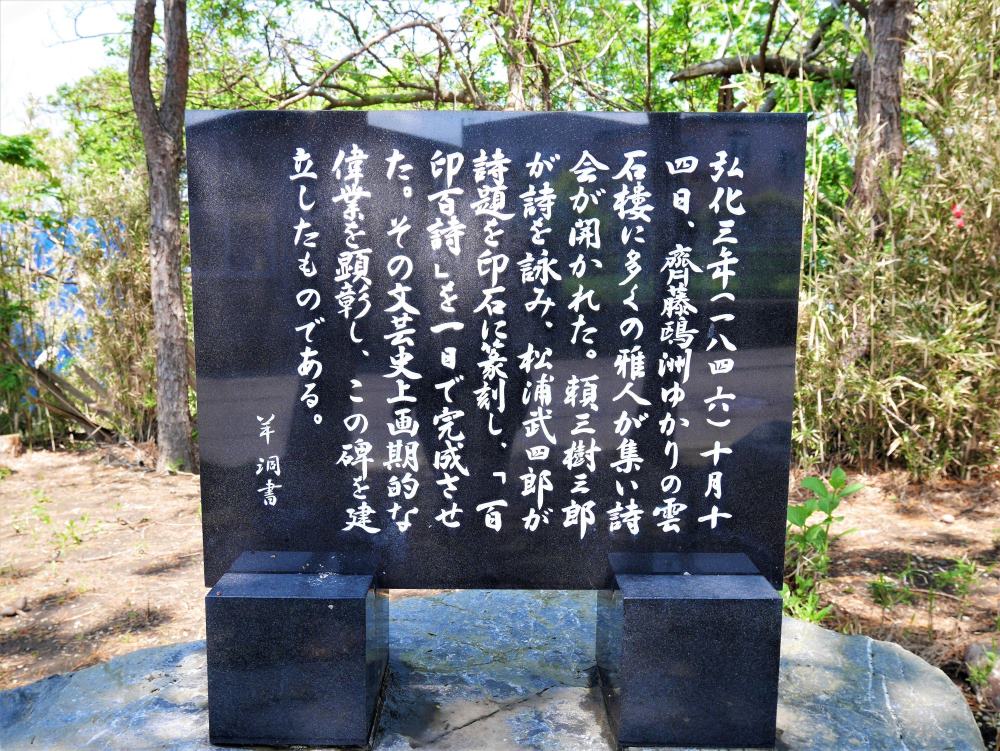 弘化三年(一八四六)十月十
四日、齊藤鴎洲ゆかりの雲
石楼に多くの雅人が集い詩
会が開かれた。頼三樹三郎
が詩を詠み、松浦武四郎が
詩題を印石に篆刻し、「百
印百詩」を一日で完成させ
た。その文芸史上画期的な
偉業を顕彰し、この碑を建
立したものである。
羊洞書